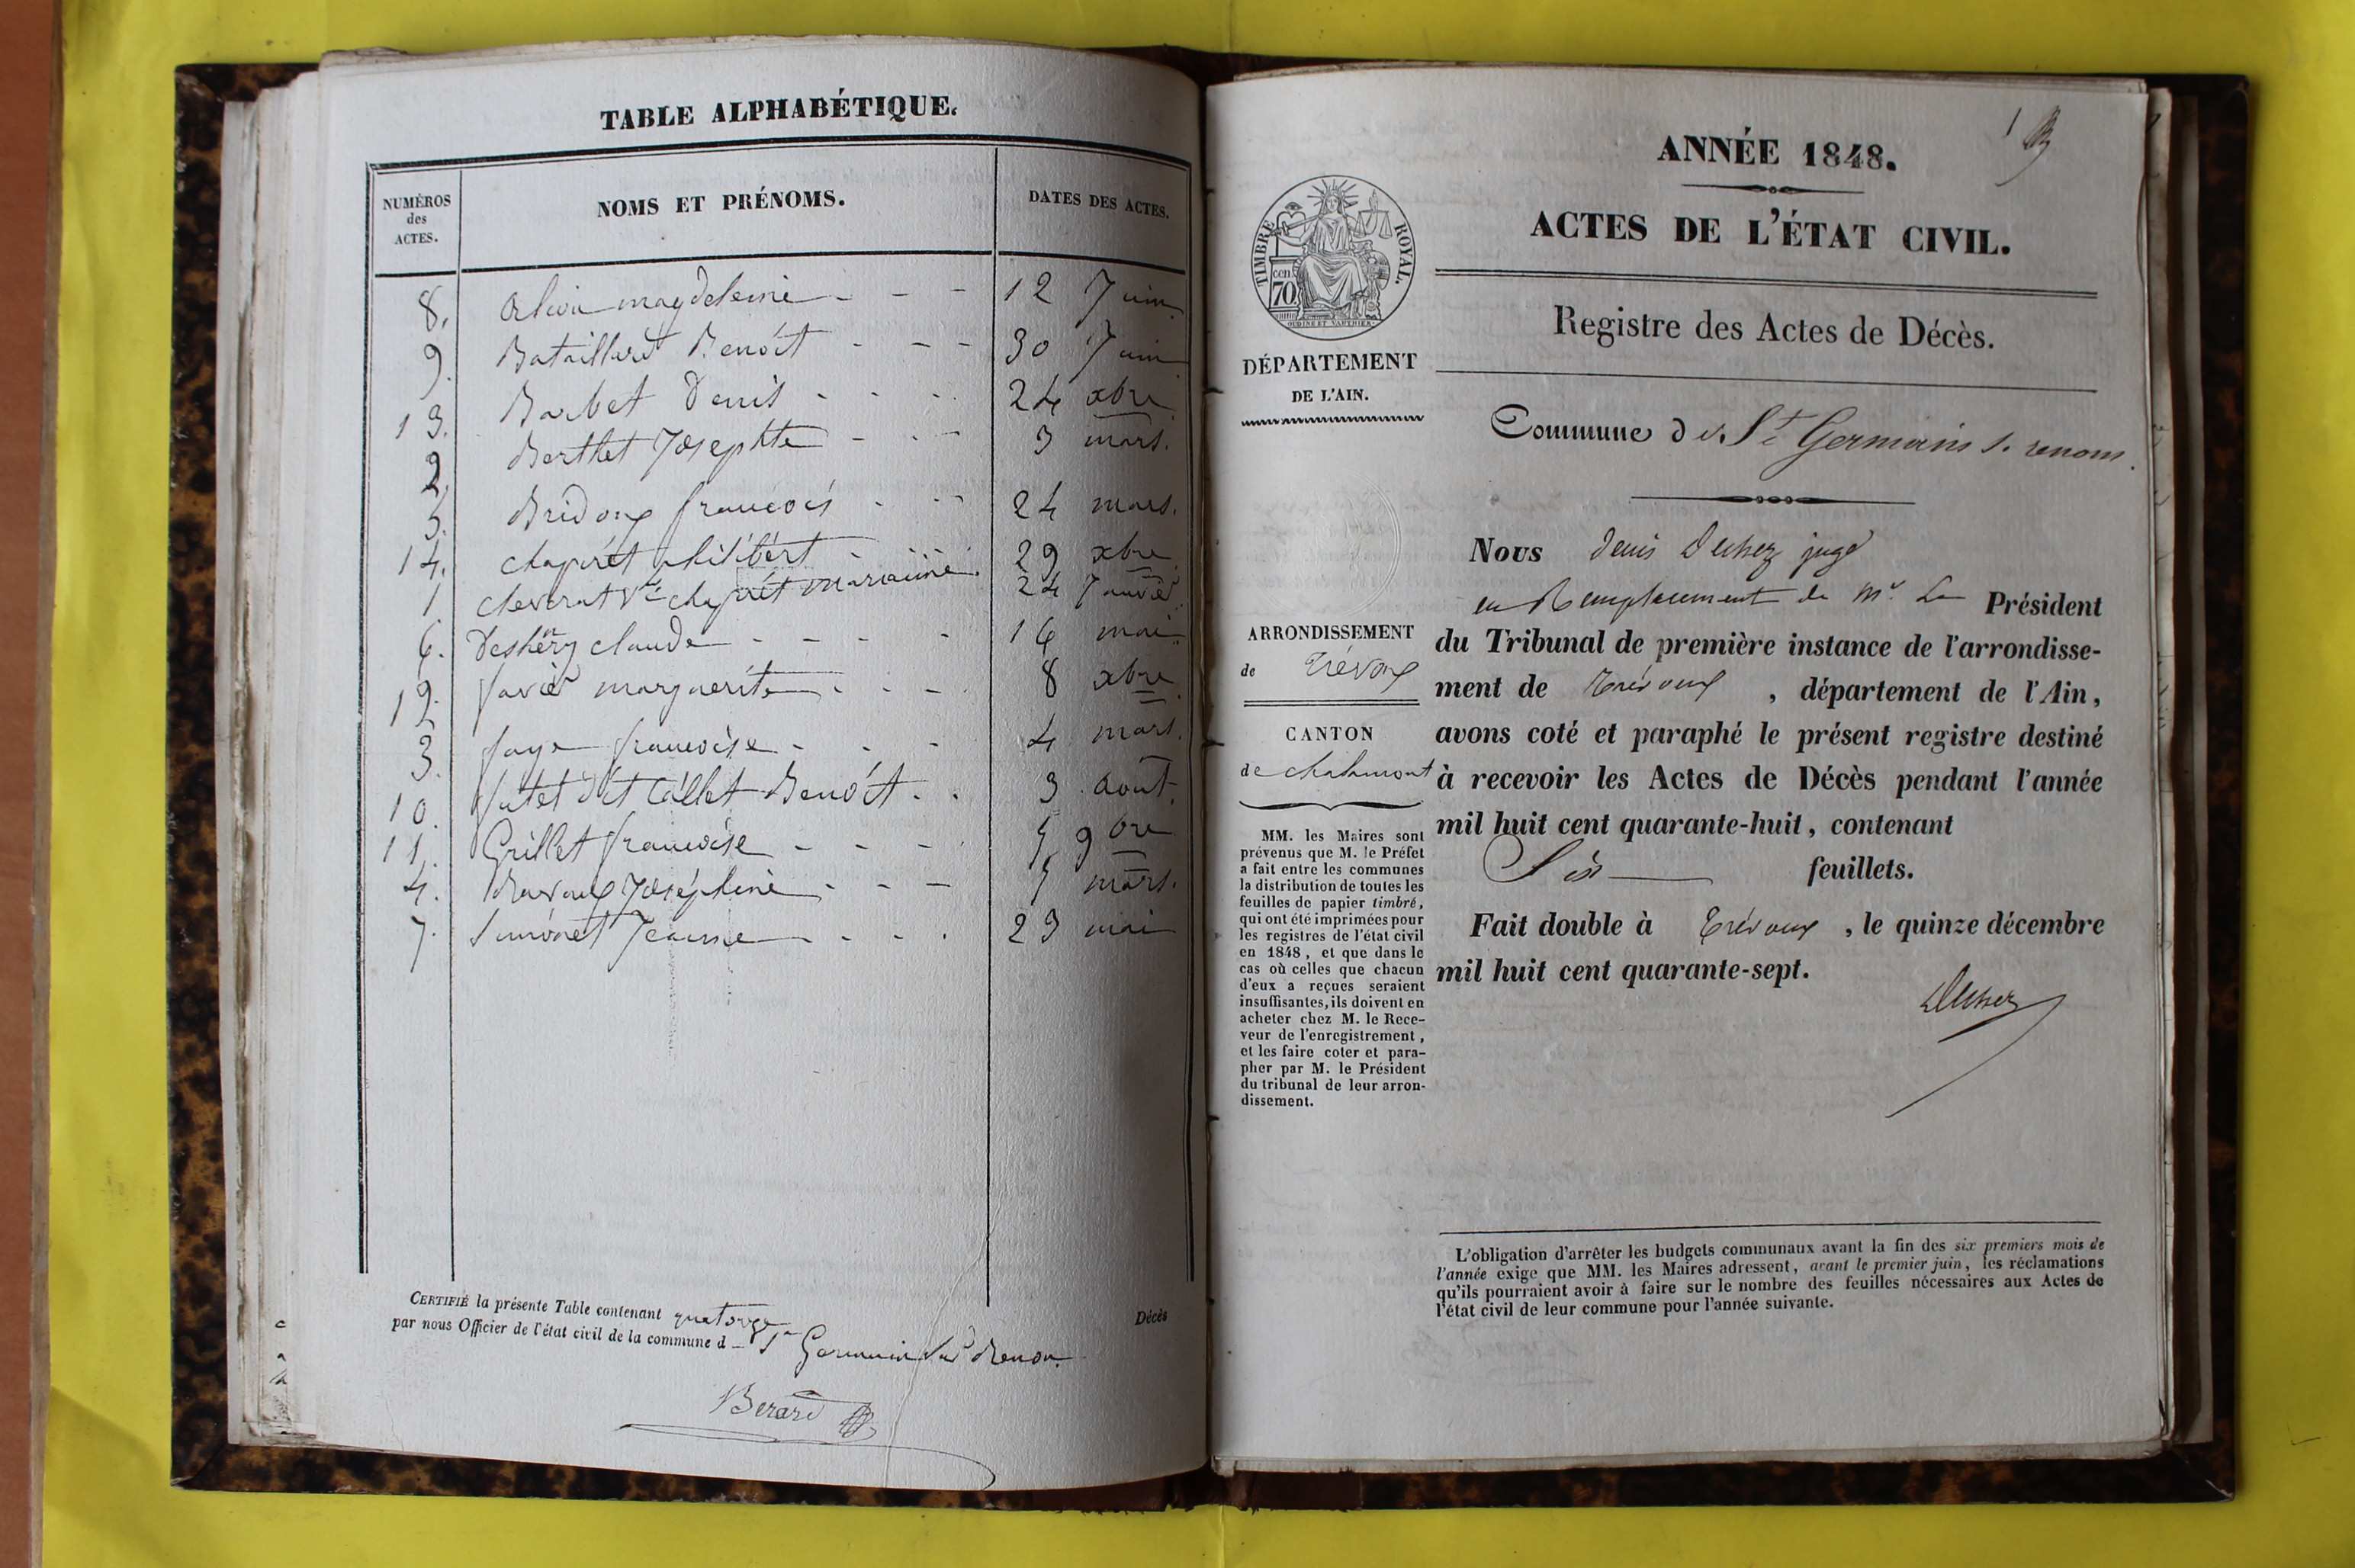 TABLE ALPHABÉTIQUE.
NUMÉROS des ACTES.
NOMS ET PRÉNOMS.
DATES DES ACTES.
8. magdeleine - - - 12 Juin
9. Bataillard Benoít - - - 30 Juin
13. Barbet Denis - - - 24 xbre
2. Berthet Josephte - - - 3 mars.
5. françois - - - 24 mars.
14. chapirét philibert - 29 xbre
1. cheverat Ve. chapirét mariainne. 24 Janvier
6. claude - - - - 16 mai
12. favier marguerite - - - 8 xbre
3. faye francoise - - - 4 mars.
10. futet dit Callet Benoít - . 3 août.
11. Grillet francoise - - - 5 9bre
4. Joséphine - - - 5 mars.
7. Simonet Jeanne - - - . 23 mai
CERTIFIÉ la présente Table contenant quatorze Décès
par nous Officier de l'état civil de la commune d St Germain sur Renon.
Berard
1
ANNÉE 1848.
ACTES DE L'ÉTAT CIVIL.
TIMBRE ROYAL.
cen 70
OUDINE ET VAUTHIER
Registre des Actes de Décès.
DÉPARTEMENT
DE L'AIN.
Commune de St Germain s. renom.
Nous denis Duchez juge
en Remplacement de Mr. Le Président
du Tribunal de première instance de l'arrondisse-
ment de Trévoux , département de l'Ain,
avons coté et paraphé le présent registre destiné
à recevoir les Actes de Décès pendant l'année
mil huit cent quarante-huit, contenant
Six feuillets.
Fait double à Trévoux , le quinze décembre
mil huit cent quarante-sept.
Duchez
ARRONDISSEMENT
de Trévoux
CANTON
de chalamont
MM. les Maires sont
prévenus que M. le Préfet
a fait entre les communes
la distribution de toutes les
feuilles de papier timbré,
qui ont été imprimées pour
les registres de l'état civil
en 1848, et que dans le
cas où celles que chacun
d'eux a reçues seraient
insuffisantes, ils doivent en
acheter chez M. le Rece-
veur de l'enregistrement,
et les faire coter et para-
pher par M. le Président
du tribunal de leur arron-
dissement.
L'obligation d'arrêter les budgets communaux avant la fin des six premiers mois de
l'année exige que MM. les Maires adressent, avant le premier juin, les réclamations
qu'ils pourraient avoir à faire sur le nombre des feuilles nécessaires aux Actes de
l'état civil de leur commune pour l'année suivante.